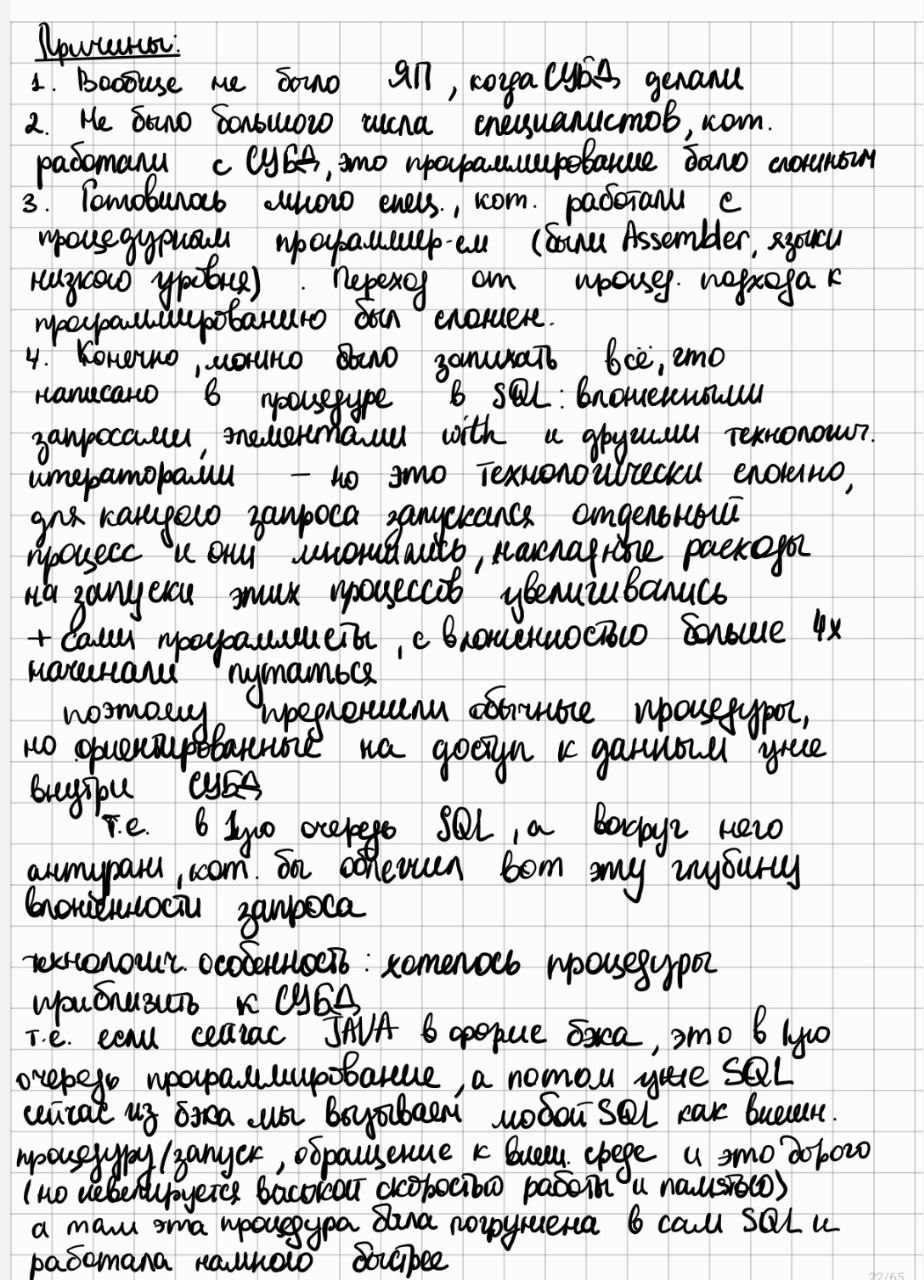 Причины:
1. Вообще не было ЯП, когда СУБД делали
2. Не было большого числа специалистов, кот.
работали с СУБД, это программирование было сложным
3. Готовилось много спец., кот. работали с
процедурным программир-ем (были Assembler, языки
низкого уровня). Переход от процед. подхода к
программированию был сложен.
4. Конечно, можно было запихать всё, что
написано в процедуре в SQL: вложенными
запросами, элементами with и другими технологич.
итераторами – но это технологически сложно,
для каждого запроса запускался отдельный
процесс и они множились, накладные расходы
на запуски этих процессов увеличивались
+ сами программисты, с вложенностью больше 4х
начинали путаться
поэтому предложили обычные процедуры,
но ориентированные на доступ к данным уже
внутри СУБД
Т.е. в 1ую очередь SQL, а вокруг него
антураж, кот. бы облегчил вот эту глубину
вложенности запроса
технологич. особенность: хотелось процедуры
приблизить к СУБД
т.е. если сейчас JAVA в форме бэка, это в 1ую
очередь программирование, а потом уже SQL
сейчас из бэка мы вызываем любой SQL как внешн.
процедуру/запуск, обращение к внеш. среде и это дорого
(но невелируется высокой скоростью работы и памятью)
а там эта процедура была погружена в сам SQL и
работала намного быстрее
22/65